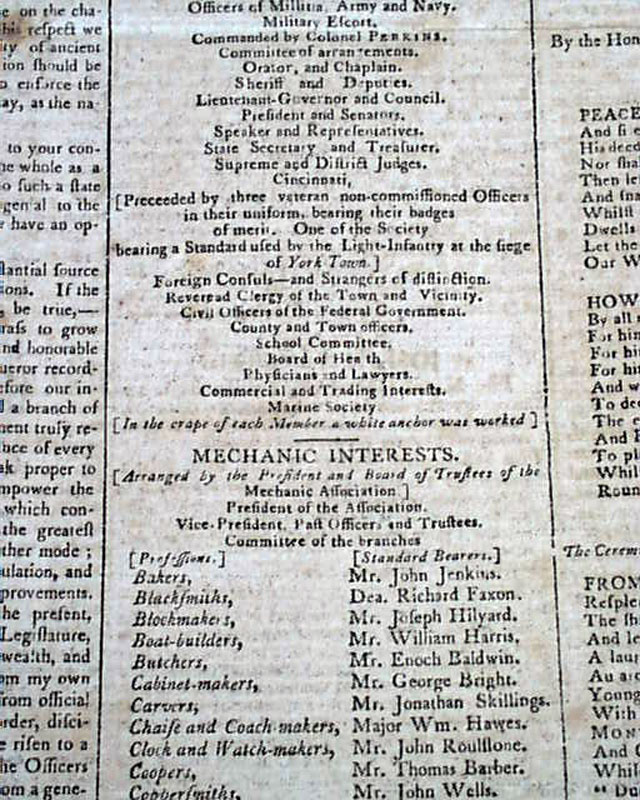 se on the cha-
his reſpect we
ity of ancient
ion ſhould be
o enforce the
ay, as the na-
to your con-
he whole as a
o ſuch a ſtate
genial to the
e have an op-
ſtantial ſource
ions. If the
be true,—
graſs to grow
nd honorable
ueror record-
efore our in-
d a branch of
ment truly re-
nce of every
ak proper to
mpower the
which con-
the greateſt
ther mode ;
ulation, and
provements.
he preſent,
Legiſlature,
wealth, and
om my own
from official
order, diſci-
e riſen to a
he Officers
om a gene-
Officers of Militia, Army and Navy.
Military Eſcort,
Commanded by Colonel PERKINS.
Committee of arrangements.
Orator, and Chaplain.
Sheriff and Deputies.
Lieutenant-Governor and Council.
Preſident and Senators.
Speaker and Repreſentatives.
State Secretary and Treaſurer.
Supreme and Diſtrict Judges.
Cincinnati,
[Preceeded by three veteran non-commiſſioned Officers
in their uniform, bearing their badges
of merit. One of the Society
bearing a Standard uſed by the Light-Infantry at the ſiege
of York Town.]
Foreign Conſuls—and Strangers of diſtinction.
Reveread Clergy of the Town and Vicinity.
Civil Officers of the Federal Government.
County and Town officers.
School Committee.
Board of Health
Phyſicians and Lawyers.
Commercial and Trading Intereſts.
Marine Society
[In the crape of each Member a white anchor was worked]
MECHANIC INTERESTS.
[Arranged by the Preſident and Board of Truſtees of the
Mechanic Aſſociation]
Preſident of the Aſſociation.
Vice-Preſident, Paſt Officers and Truſtees.
Committee of the branches
[Profeſſions.] [Standard Bearers.]
Bakers, Mr. John Jenkins.
Blackſmiths, Dea. Richard Faxon.
Blockmakers, Mr. Joſeph Hilyard.
Boat-builders, Mr. William Harris.
Butchers, Mr. Enoch Baldwin.
Cabinet-makers, Mr. George Bright.
Carvers, Mr. Jonathan Skillings.
Chaiſe and Coach-makers, Major Wm. Hawes.
Clock and Watch-makers, Mr. John Roulſtone.
Coopers, Mr. Thomas Barber.
Copperſmiths, Mr. John Wells.
By the Hon
PEACE
And ſi
His deed
Nor ſha
Then le
And ſna
Whilſt
Dwells
Let the
Our W
HOW
By all
For him
For his
For hi
And w
To de
The c
And
To pl
Whil
Roun
The Cerem
FRON
Reſple
The ſh
And le
A laur
Au
Young
With
MON
And
Whil
"Do